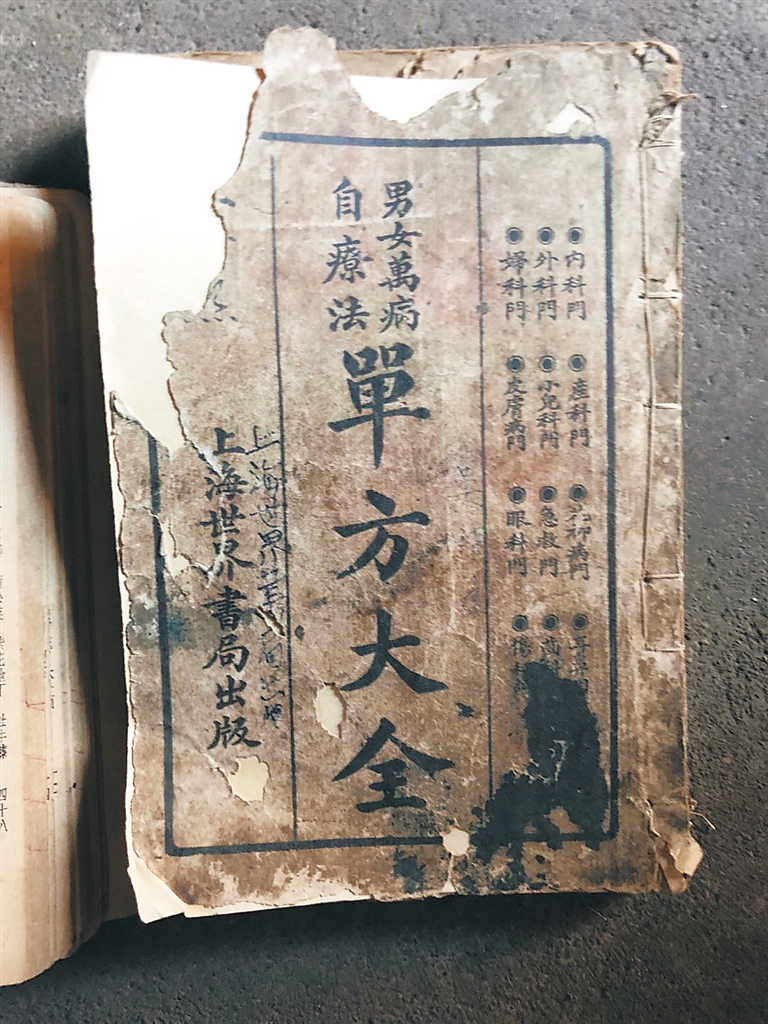 ●內科門 ●產科門 ●花柳病門
●外科門 ●小兒科門 ●急救門
●婦科門 ●皮膚病門 ●眼科門
男女萬病
自療法
單方大全
上海世界書局出版
上海世界
四十八